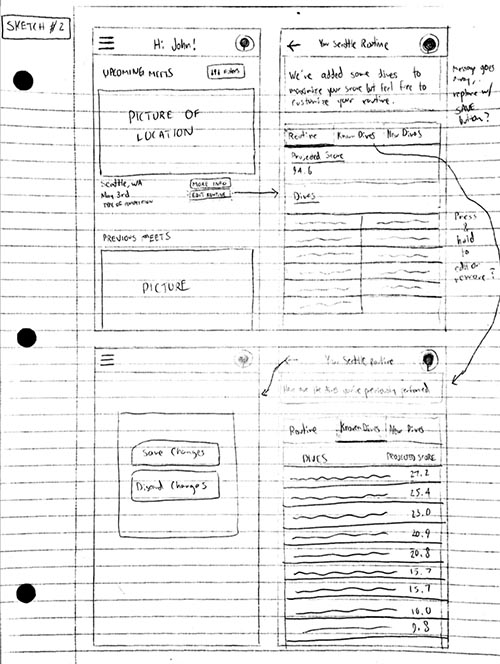 SKETCH #2
Hi John!
UPCOMING MEETS
PICTURE OF
LOCATION
Seattle, WA
May 3rd
TYPE OF COMPETITION
MORE INFO
EDIT ROUTINE
PREVIOUS MEETS
PICTURE
Your Seattle Routine
We've added some dives to
maximize your score but feel free to
customize your routine.
Routine
Known Dives
New Dives
Projected Score
94.6
Dives
Message goes
away,
replace w/
SAVE
button?
Press
&
hold
to
edit or
remove?
Save Changes
Discard Changes
Your Seattle Routine
Here are the dives you've previously performed
Routine
Known Dives
New Dives
DIVES
PROJECTED SCORE
27.2
25.4
23.0
20.9
20.8
15.7
15.7
10.0
9.8